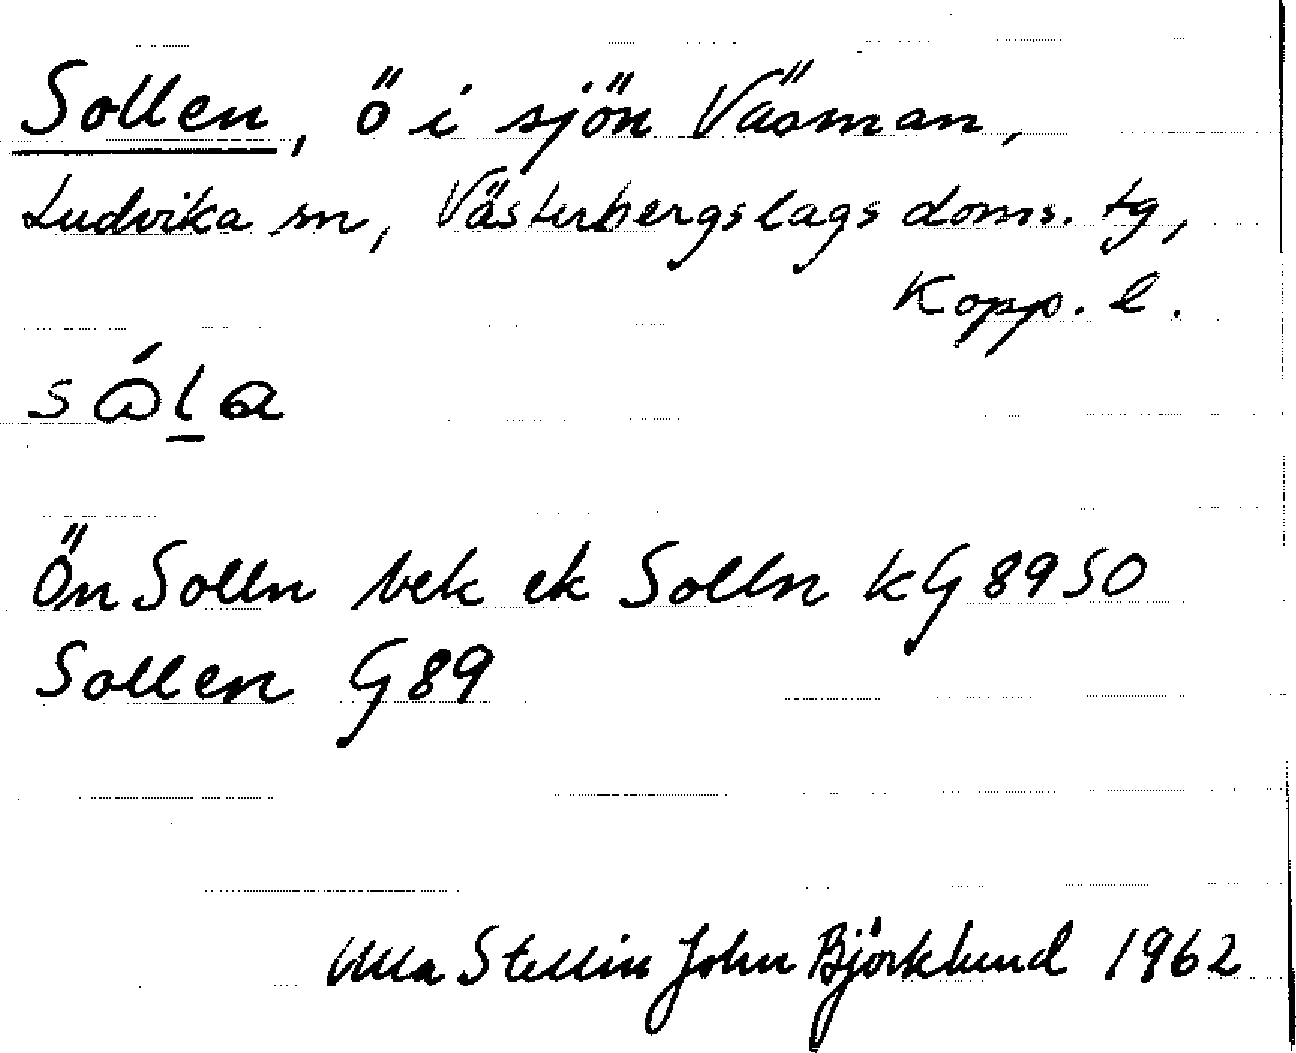 Sollen, ö i sjön Väsman,
Ludvika sn, Västerbergslags doms. tg,
Kopp. l.
sóla
Ön Solln bek ek Solln kG 8950
Sollen G89
Ulla Stellin John Björklund 1962